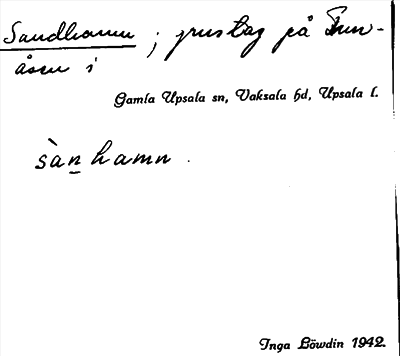 Sandhamn ; grustag på Tun-
åsen i
Gamla Upsala sn, Vaksala hd, Upsala l.
sàn̲hamn .
Inga Löwdin 1942.